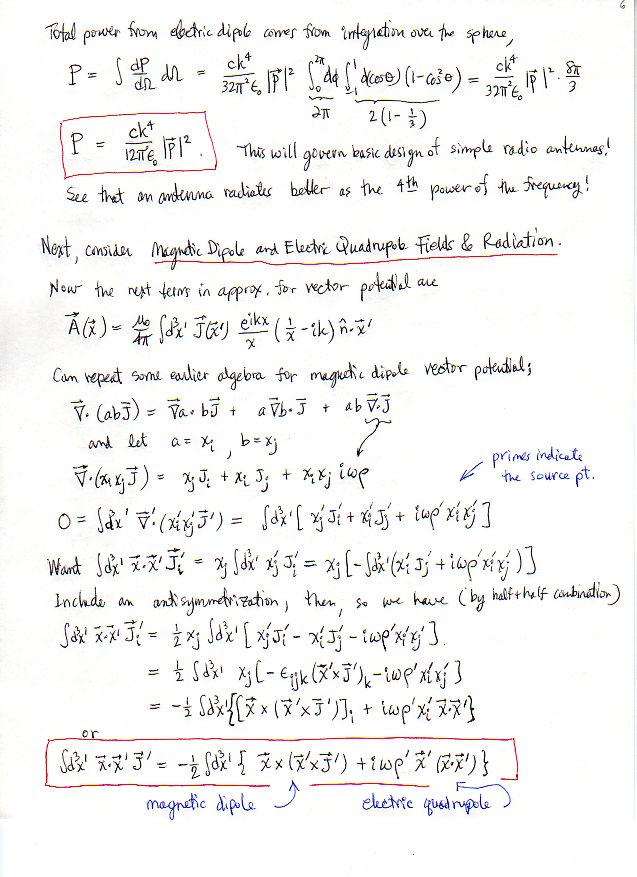 6
Total power from electric dipole comes from integration over the sphere,
P = ∫ dP/dΩ dΩ = ck⁴/32π²ε₀ |p⃗|² ∫₀^2π dφ ∫₋₁^1 d(cosθ) (1-cos²θ) = ck⁴/32π²ε₀ |p⃗|² · 8π/3
2π 2(1-1/3)
P = ck⁴/12πε₀ |p⃗|². This will govern basic design of simple radio antennas!
See that an antenna radiates better as the 4th power of the frequency!
Next, consider Magnetic Dipole and Electric Quadrupole Fields & Radiation.
Now the next terms in approx. for vector potential are
A⃗(x⃗) = μ₀/4π ∫d³x' J⃗(x⃗') e^ikx/x (1/x - ik) n̂·x⃗'
Can repeat some earlier algebra for magnetic dipole vector potential;
∇⃗·(abJ⃗) = ∇⃗a·bJ⃗ + a∇⃗b·J⃗ + ab ∇⃗·J⃗
and let a = xᵢ, b = xⱼ
∇⃗·(xᵢxⱼJ⃗) = xⱼJᵢ + xᵢJⱼ + xᵢxⱼ iωρ
primes indicate
the source pt.
0 = ∫d³x' ∇⃗'·(xᵢ'xⱼ'J⃗') = ∫d³x' [xⱼ'Jᵢ' + xᵢ'Jⱼ' + iωρ'xᵢ'xⱼ']
Want ∫d³x' x⃗·x⃗' J⃗ᵢ' = xⱼ ∫d³x' xⱼ'Jᵢ' = xⱼ [-∫d³x'(xᵢ'Jⱼ' + iωρ'xᵢ'xⱼ')]
Include an antisymmetrization, then, so we have (by half+half combination)
∫d³x' x⃗·x⃗' Jᵢ' = ½ xⱼ ∫d³x' [xⱼ'Jᵢ' - xᵢ'Jⱼ' - iωρ'xᵢ'xⱼ'].
= ½ ∫d³x' xⱼ[-ϵᵢⱼₖ(x⃗'×J⃗')ₖ - iωρ'xᵢ'xⱼ']
= -½ ∫d³x'{[x⃗×(x⃗'×J⃗')]ᵢ + iωρ'xᵢ' x⃗·x⃗'}
or
∫d³x' x⃗·x⃗' J⃗' = -½ ∫d³x' { x⃗×(x⃗'×J⃗') + iωρ' x⃗' (x⃗·x⃗') }
magnetic dipole electric quadrupole